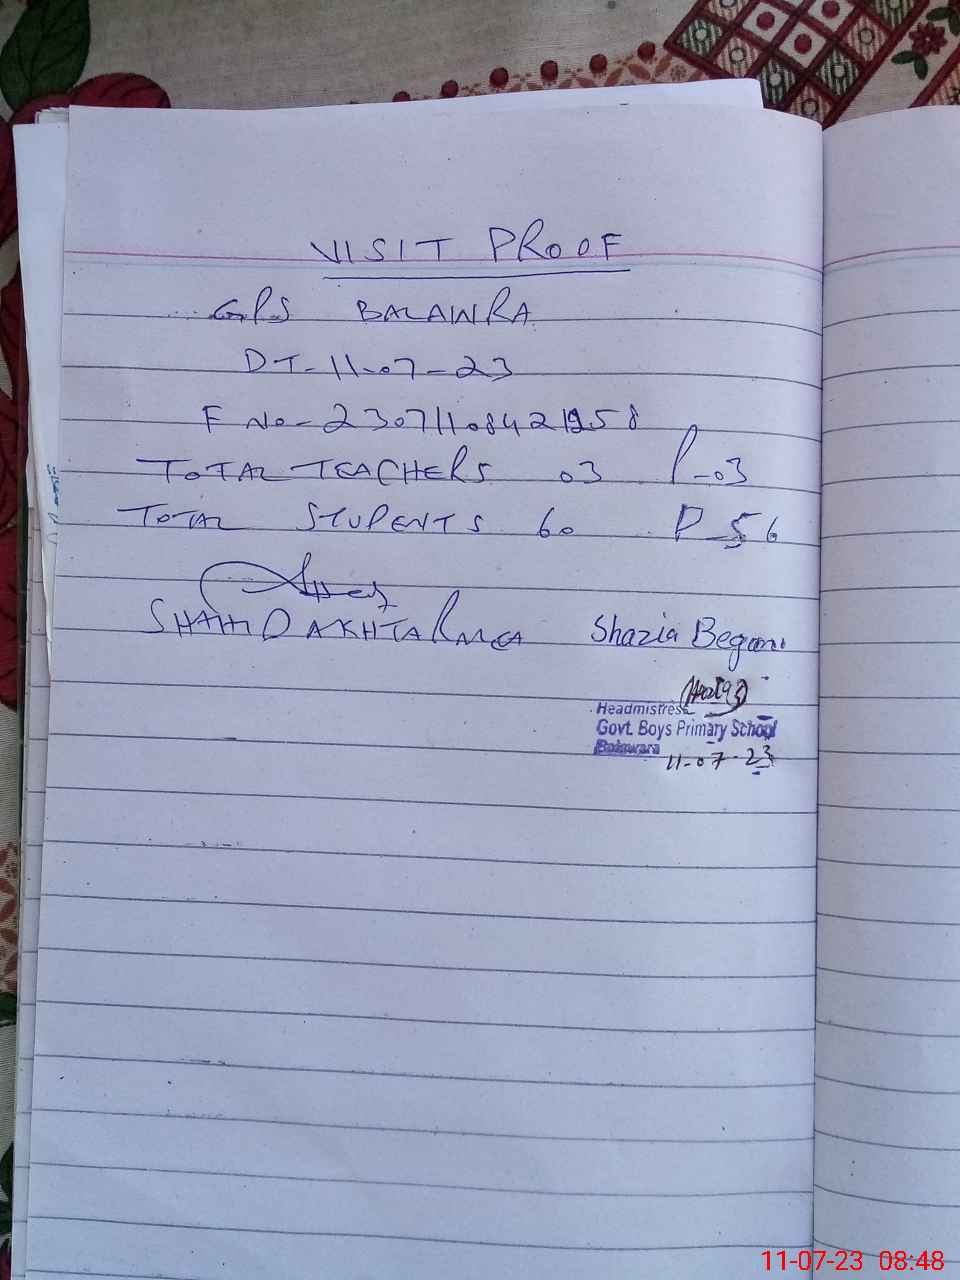 VISIT PROOF
GPS BALAWRA
DT-11-07-23
F No-23071108421958
TOTAL TEACHERS 03 P-03
TOTAL STUDENTS 60 P 56
SHAHID AKHTAR Shazia Begam
Headmistress
Govt. Boys Primary School
11-07-23
11-07-23 08:48